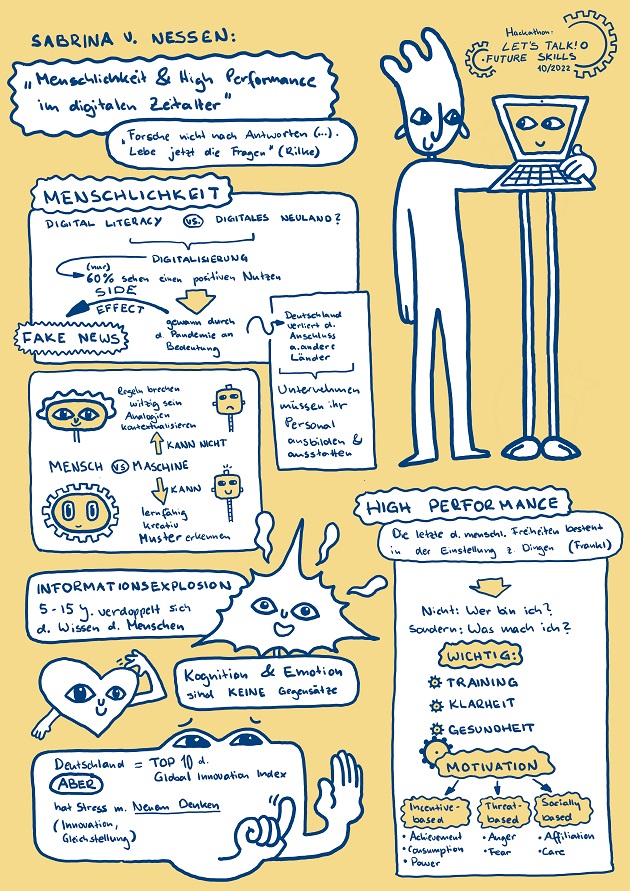 SABRINA V. NESSEN:
Hackathon:
LET'S TALK!
FUTURE SKILLS
10/2022
„Menschlichkeit & High Performance
im digitalen Zeitalter"
„Forsche nicht nach Antworten (...).
Lebe jetzt die Fragen" (Rilke)
MENSCHLICHKEIT
DIGITAL LITERACY VS. DIGITALES NEULAND?
DIGITALISIERUNG
(nur)
60% sehen einen positiven Nutzen
SIDE
EFFECT
FAKE NEWS
gewann durch
d. Pandemie an
Bedeutung
Deutschland
verliert d.
Anschluss
a. andere
Länder
Unternehmen
müssen ihr
Personal
ausbilden &
ausstatten
Regeln brechen
witzig sein
Analogien
kontextualisieren
KANN NICHT
MENSCH VS MASCHINE
KANN
lernfähig
kreativ
Muster erkennen
INFORMATIONSEXPLOSION
5-15 y. verdoppelt sich
d. Wissen d. Menschen
Kognition & Emotion
sind KEINE Gegensätze
Deutschland = TOP 10 d.
Global Innovation Index
ABER
hat Stress m. Neuem Denken
(Innovation,
Gleichstellung)
HIGH PERFORMANCE
Die letzte d. menschl. Freiheiten besteht
in der Einstellung z. Dingen (Frankl)
Nicht: Wer bin ich?
Sondern: Was mach ich?
WICHTIG:
TRAINING
KLARHEIT
GESUNDHEIT
MOTIVATION
Incentive-
based
• Achievement
• Consumption
• Power
Threat-
based
• Anger
• Fear
Socially
based
• Affiliation
• Care